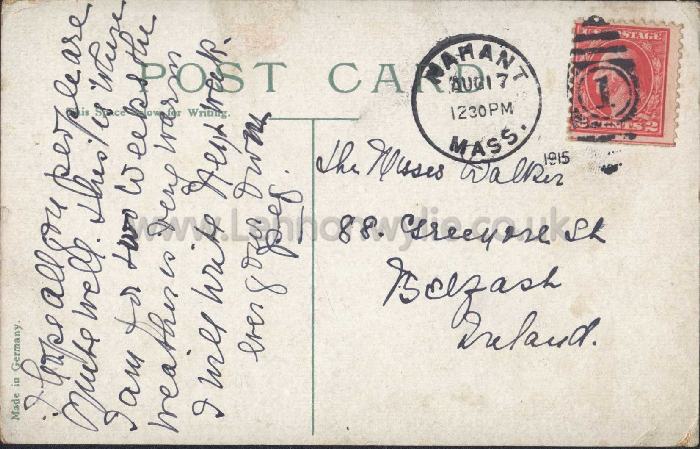 POST CARD
This Space Below for Writing.
I hope all you people are
Quite well. this is where
I am for two weeks the
weather is very warm
I will write next week.
ever your own
Peg.
Made in Germany.
NAHANT
AUG 17
12 30 PM
MASS.
1915
1
U.S. POSTAGE
CENTS 2
The Misses Walker
88. Greenore St
Belfast
Ireland.
www.Lennonwylie.co.uk